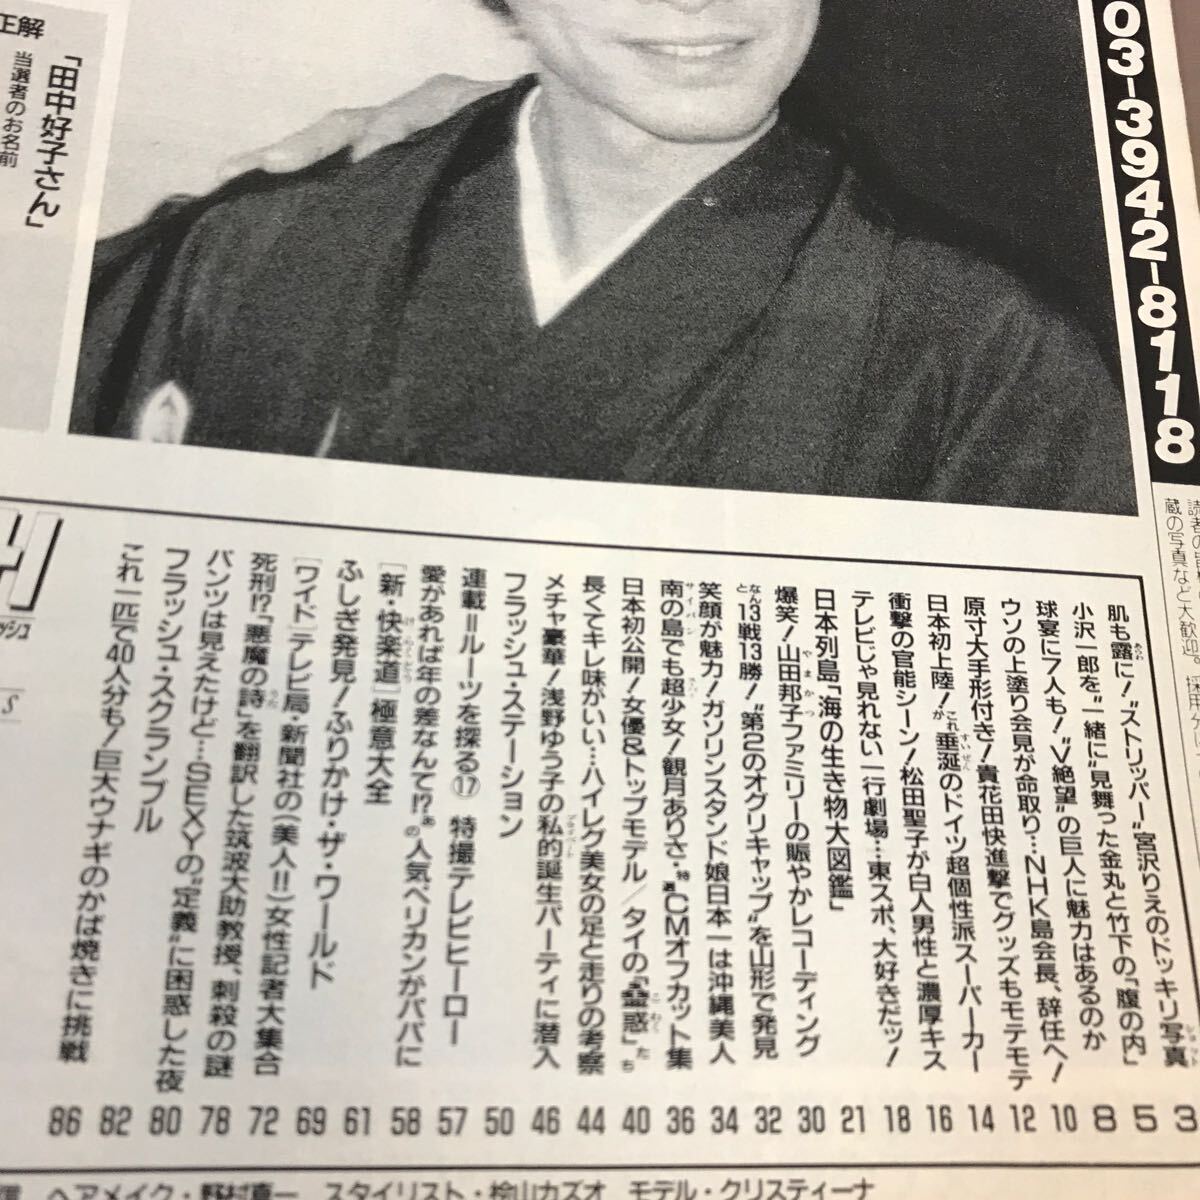 03-3942-8118
正解
「田中好子さん」
当選者のお名前
蔵の写真など大歓迎。
肌も露に!“ストリッパー”宮沢りえのドッキリ写真 3
小沢一郎を“一緒に”見舞った金丸と竹下の「腹の内」 5
球宴に7人も!“V絶望”の巨人に魅力はあるのか 8
ウソの上塗り会見が命取り…NHK島会長、辞任へ! 10
原寸大手形付き!貴花田快進撃でグッズもモテモテ 12
日本初上陸!これが垂涎のドイツ超個性派スーパーカー 14
衝撃の官能シーン!松田聖子が白人男性と濃厚キス 16
テレビじゃ見れない一行劇場…東スポ、大好きだッ! 18
日本列島「海の生き物大図鑑」 21
爆笑!山田邦子ファミリーの賑やかレコーディング 30
なんと13戦13勝!“第2のオグリキャップ”を山形で発見 32
笑顔が魅力!ガソリンスタンド娘日本一は沖縄美人 34
南の島でも超少女!観月ありさ・特選CMオフカット集 36
日本初公開!女優&トップモデル/タイの「蠱惑」たち 40
長くてキレ味がいい…ハイレグ美女の足と走りの考察 44
メチャ豪華!浅野ゆう子の私的誕生パーティに潜入 46
フラッシュ・ステーション 50
連載=ルーツを探る⑰ 特撮テレビヒーロー 57
愛があれば年の差なんて!?あの人気ペリカンがパパに 58
[新・快楽道]極意大全 61
ふしぎ発見!ふりかけ・ザ・ワールド 69
[ワイド]テレビ局・新聞社の(美人!!)女性記者大集合 72
死刑!?「悪魔の詩」を翻訳した筑波大助教授、刺殺の謎 78
パンツは見えたけど…SEXYの“定義”に困惑した夜 80
フラッシュ・スクランブル 82
これ一匹で40人分も!巨大ウナギのかば焼きに挑戦 86
ヘアメイク・野村真一 スタイリスト・桧山カズオ モデル・クリスティーナ